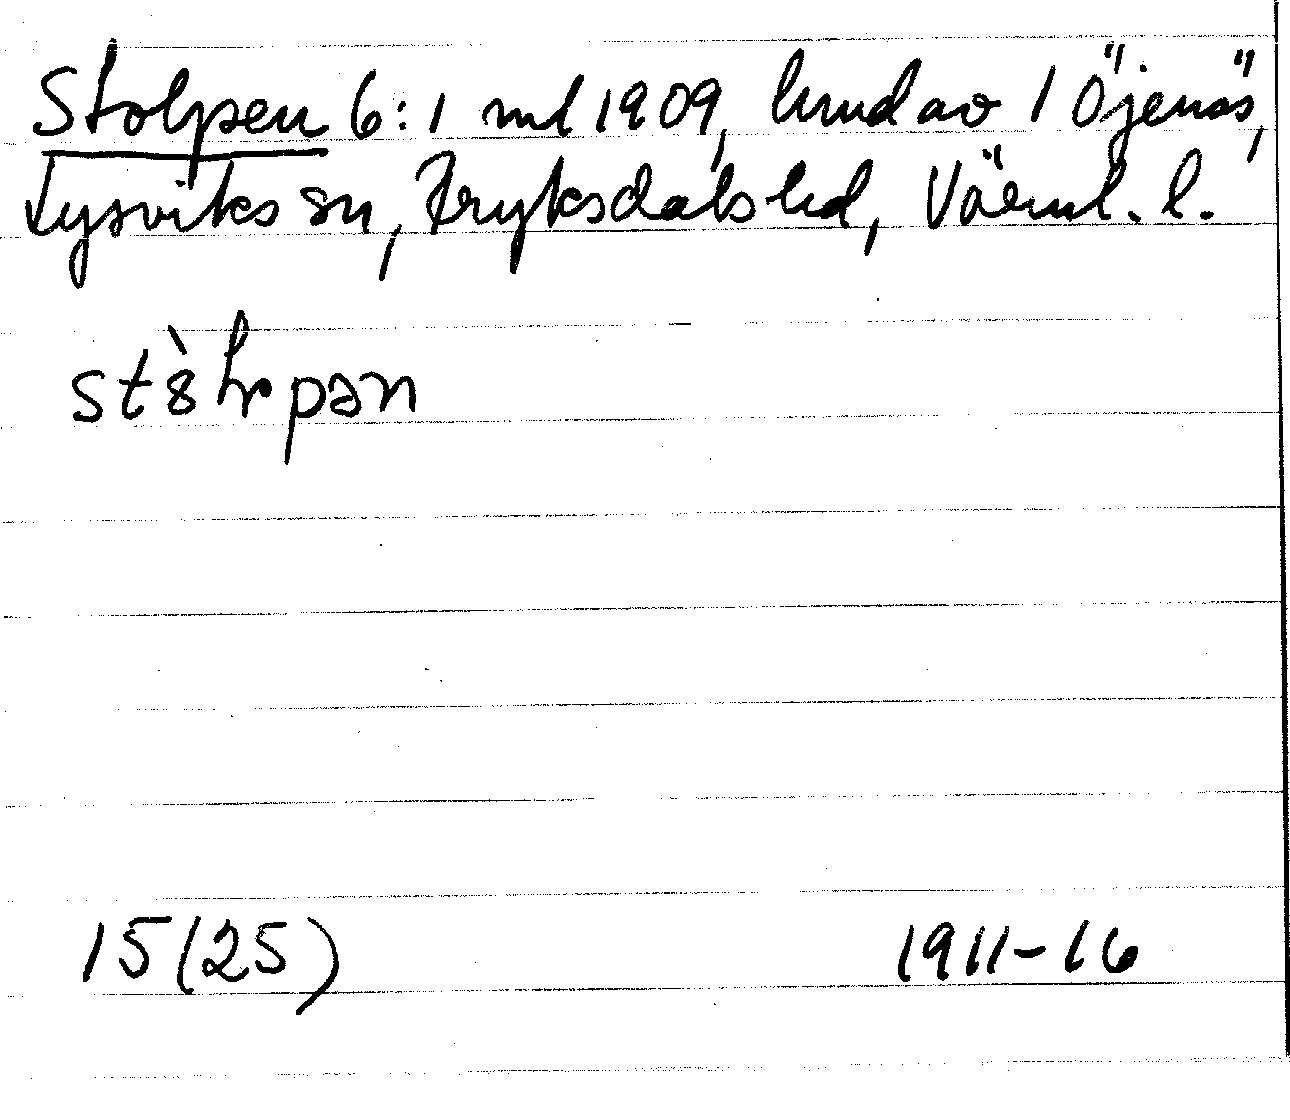 Stolpen 6:1 ml 1909, hmd av 1 Öjenäs,
Lysviks sn, Fryksdals hd, Värml. l.
15(25) 1911-16